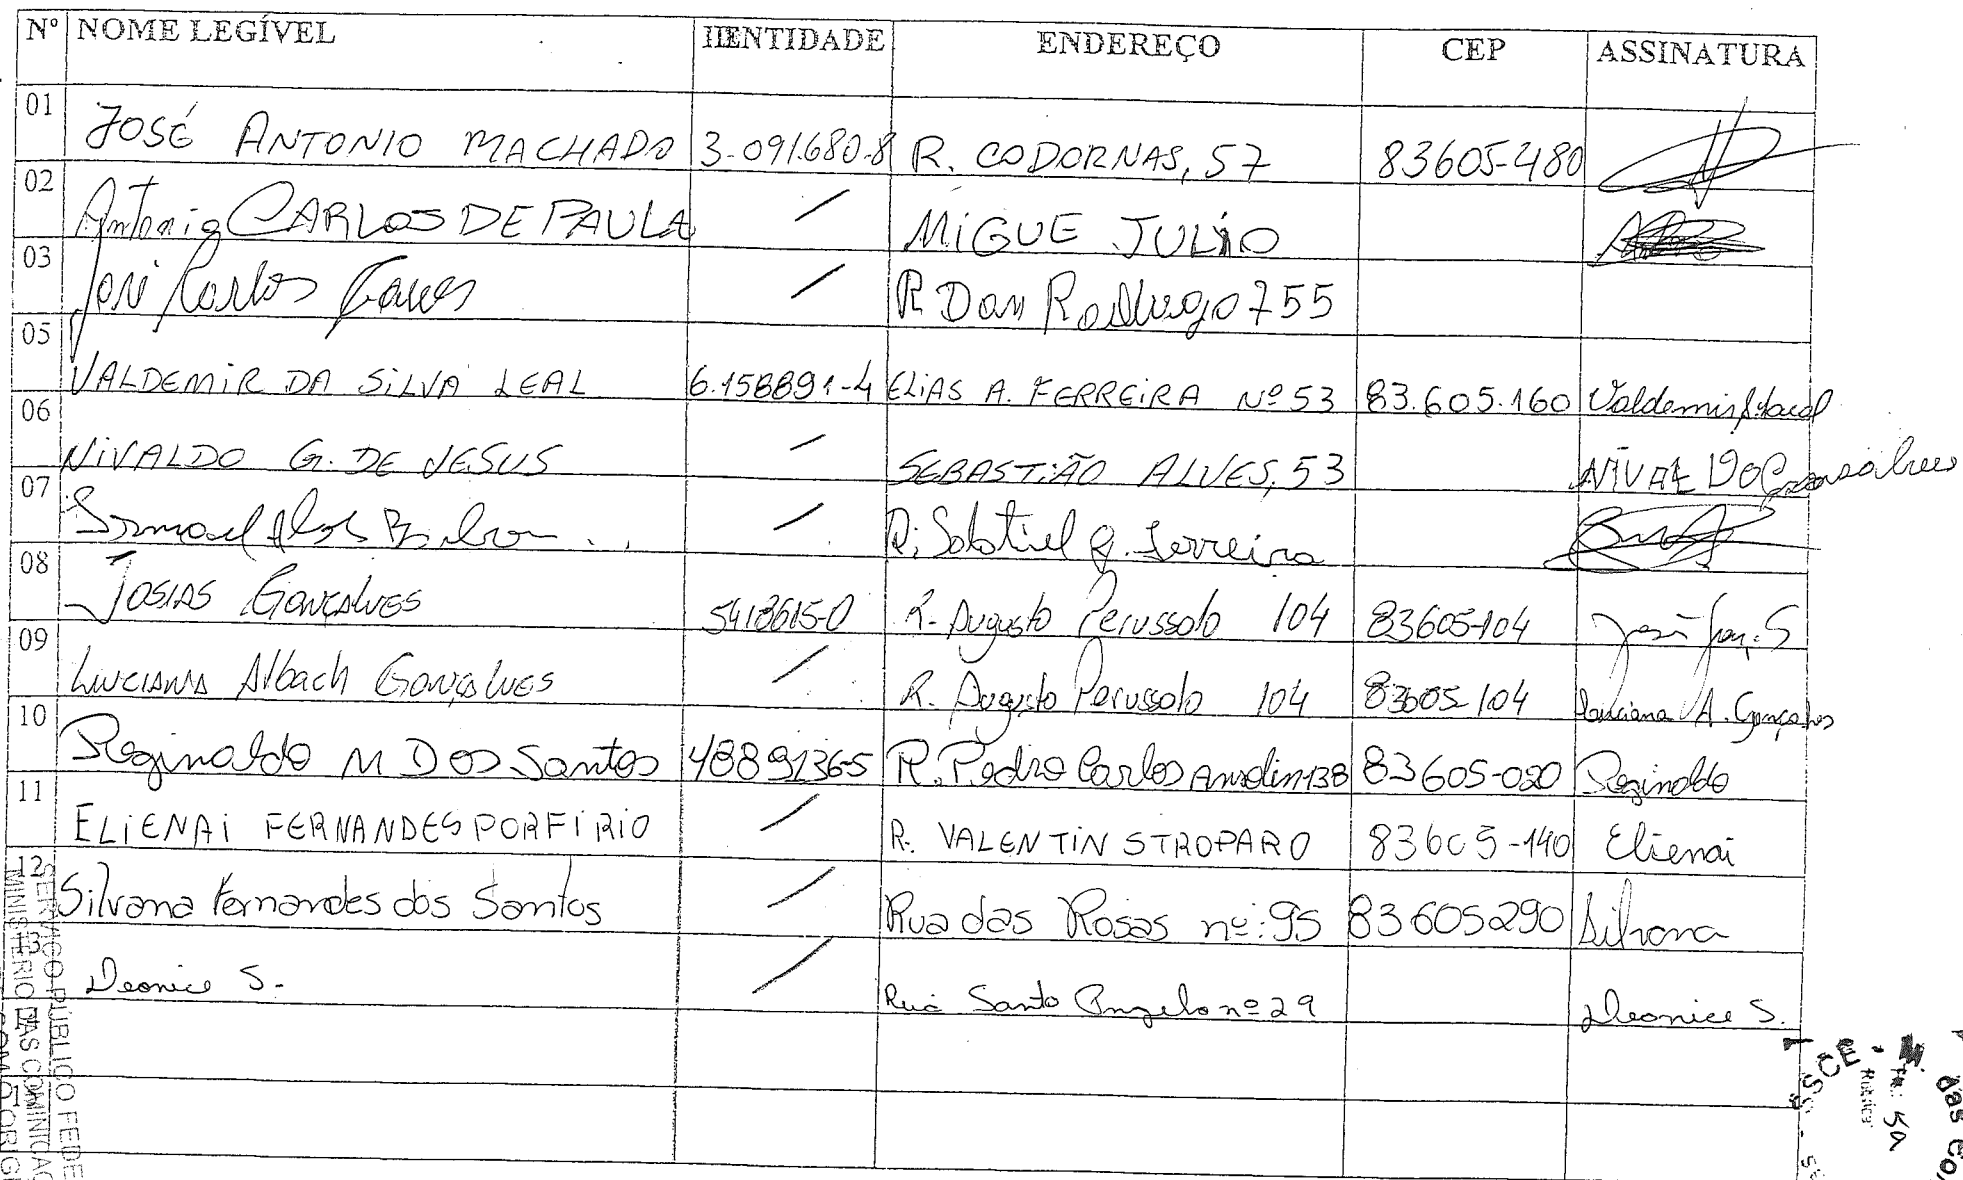 Nº NOME LEGÍVEL IDENTIDADE ENDEREÇO CEP ASSINATURA
01 JOSÉ ANTONIO MACHADO 3-091.680-8 R. CODORNAS, 57 83605-480
02 Antonio CARLOS DE PAULA / MIGUE JULIO
03 José Carlos / R Dom Rodrigo 755
05 VALDEMIR DA SILVA LEAL 6.158891-4 ELIAS A. FERREIRA Nº 53 83.605.160 Valdemir
06 NIVALDO G. DE JESUS / SEBASTIÃO ALVES, 53 NIVALDO
07 / R. Ferreira
08 JOSIAS GONÇALVES 5413615-0 R. Augusto Perussolo 104 83605-104
09 LUCIANA Albach Gonçalves / R. Augusto Perussolo 104 83605-104 Luciana A. Gonçalves
10 Reginaldo M DOS Santos 48891365 R. Pedro Carlos 138 83605-020 Reginaldo
11 ELIENAI FERNANDES PORFIRIO / R. VALENTIN STROPARO 83605-140 Elienai
12 Silvana Fernandes dos Santos / Rua das Rosas nº: 95 83605290 Silvana
13 Deonice S. / Rua Santo Angelo nº 29 Deonice S.
SERVIÇO PÚBLICO FEDE
MINISTÉRIO DAS COMUNICAÇ
COM O ORIGI
SCE - M. das Co
Rubrica